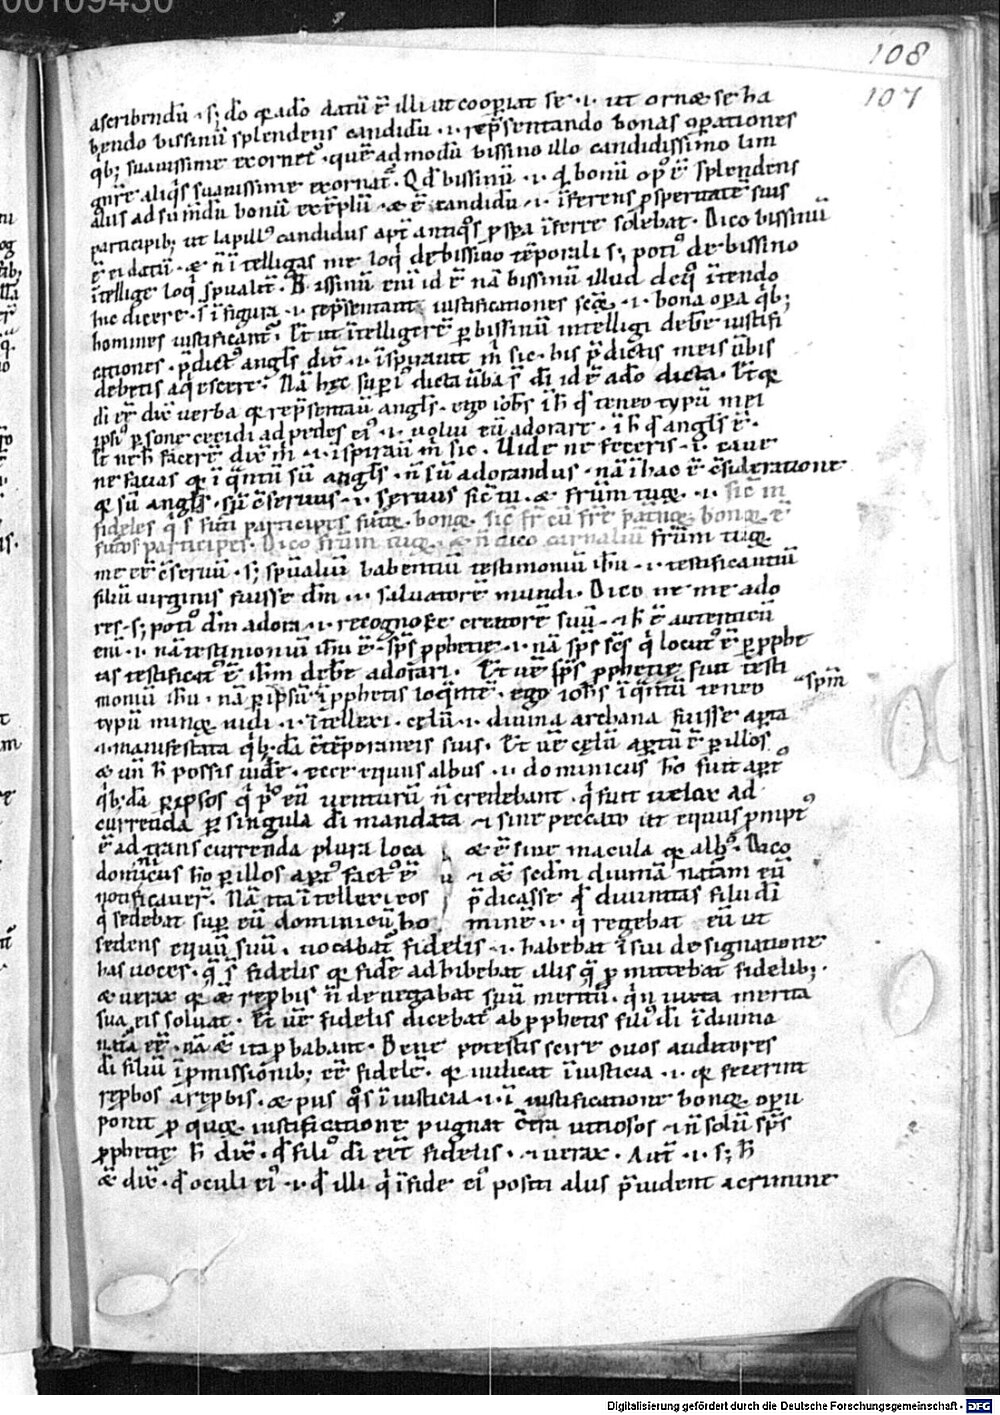 00109430
108
107
ascribendū · s; dō q̄ a dō datū ē illi ut coopiat se · i · ut ornæ se ha
bendo bissinū splendens candidū · i · rep̄sentando bonas opationes
qb; suauissime exornet᷒ · quē ad modū bissino illo candidissimo lim
aliqs suauissime exornat᷒ · Qd bissinū · i · qi bonū op᷒ ē splendens
aliis ad sumdū bonū exēplū · æ ē candidū · i · īferens psperitatē suis
participib; ut lapill᷒ candidus apt antiqos pspa īferre solebat · Dico bissinū
ē ei datū · æ n̄ ītelligas me loqi de bissino tēporali s; poti᷒ de bissino
ītellige loqi spualit · Bissinū eni id ē nā bissinū illud de q᷒ ītendo
hic dicere · s ī figura · i · rep̄sentant iustificationes scōꝝ · i · bona opa qb;
homines iustificant᷒ · Et ut ītelligerē p bissinū intelligi debere iustifi
cationes · p̄dict᷒ angls dix · i · īspirauit m̄ sic · his p̄dictis meis ūbis
debetis aqiescere · Nā hęc supi᷒ dicta ūba s̄ di id ē a dō dicta · Et q
di eē dix verba q̄ rep̄sentaū angls · ego iohs ī h̄ qd teneo typū mei
ipsi᷒ psone cecidi ad pedes ei᷒ · i · uolui eū adorare · ī h̄ qd angls ē ·
Et ne h̄ facerē dix m̄ · i · īspirauit m̄ sic · Uide ne feceris · i · caue
ne facias q̄ ī qntū sū angls · n̄ sū adorandus · nā ī hac ē c̄sideratione
q̄ sū angls · sū c̄seruus · i · seruus sic tu · æ frūm tuoꝝ · i · sic in
fideles qi s̄ fuit participes · bonoꝝ · sic fr̄ cū fr̄e pat̄noꝝ bonoꝝ ē
suos participes · Dico frūm tuoꝝ · æ n̄ dico carnaliū frūm tuoꝝ
me eē c̄seruū · s; spūaliū habentiū testimoniū ihū · i · testificantiū
filiū uirginis fuisse dm̄ · i · saluatorē mundi · Dico ne me ado
res · s; poti᷒ dm̄ adora · i · recognosce creatorē suū · h̄ ē autenticū
eni · i · nā testimoniū ihū ē sps pphetie · i · nā sps scs qi locut᷒ ē p pphe
tas testificat᷒ ē ihm debere adorari · Et uē sps pphetie fuit testi
moniū ihū · nā p ipsū ī pphetis loqnte · ego iohs ī qntū teneo
spm
typū minoꝝ uidi · i · ītellexi · cęlū · i · diuina archana fuisse apta
· i · manifestata qb; dā c̄tēporaneis suis · Et uē cęlū aptū ē p illos
æ un̄ h̄ possis uidē · ecce equus albus · i · dominicus hō fuit apt᷒
qb; dā p ipsos qi p᷒ eū uenturū n̄ credebant · qi fuit uelox ad
currenda p singula di mandata · i sine peccato ut equus pmpt᷒
ē ad transcurrenda plura loca æ ē sine macula q̄ alb᷒ · Dico
dominicus hō p illos apt᷒ fact᷒ ē · i æ scdm diuinā natam eū
notificauer · Nā ita ītellexi eos p̄dicasse qd diuinitas filii di
q sedebat sup eū dominicū ho minē · i · q regebat eū ut
sedens equū suū · uocabat᷒ fidelis · i · habebat ī sui designatione
has uoces · q s̄ fidelis q̄ fidē adhibebat illis q pmittebat fidelib; ·
æ uerax q̄ æ repbis n̄ denegabat suū meritū · qn iuxta merita
sua eis soluat · Et uē fidelis dicebat᷒ ab pphetis fili᷒ di ī diuina
nata eē · nā æ ita pbabant · Bene potestis scire o uos auditores
di filiū ī pmissionib; eē fidelē · q̄ iudicat ī iusticia · i · q̄ fecerint
repbos a repbis · æ pus qos ī iusticia · i · ī iustificatione bonoꝝ opu
ponit p quoꝝ iustificatione pugnat c̄tra uitiosos · i n̄ solū sps
pphetię h̄ dix · qd fili᷒ di erit fidelis · i uerax · Aut · i · s; h̄
æ dix · qd oculi ei᷒ · i · qd illi qi ī fide ei᷒ positi aliis p̄uident a crimine
Digitalisierung gefördert durch die Deutsche Forschungsgemeinschaft - DFG